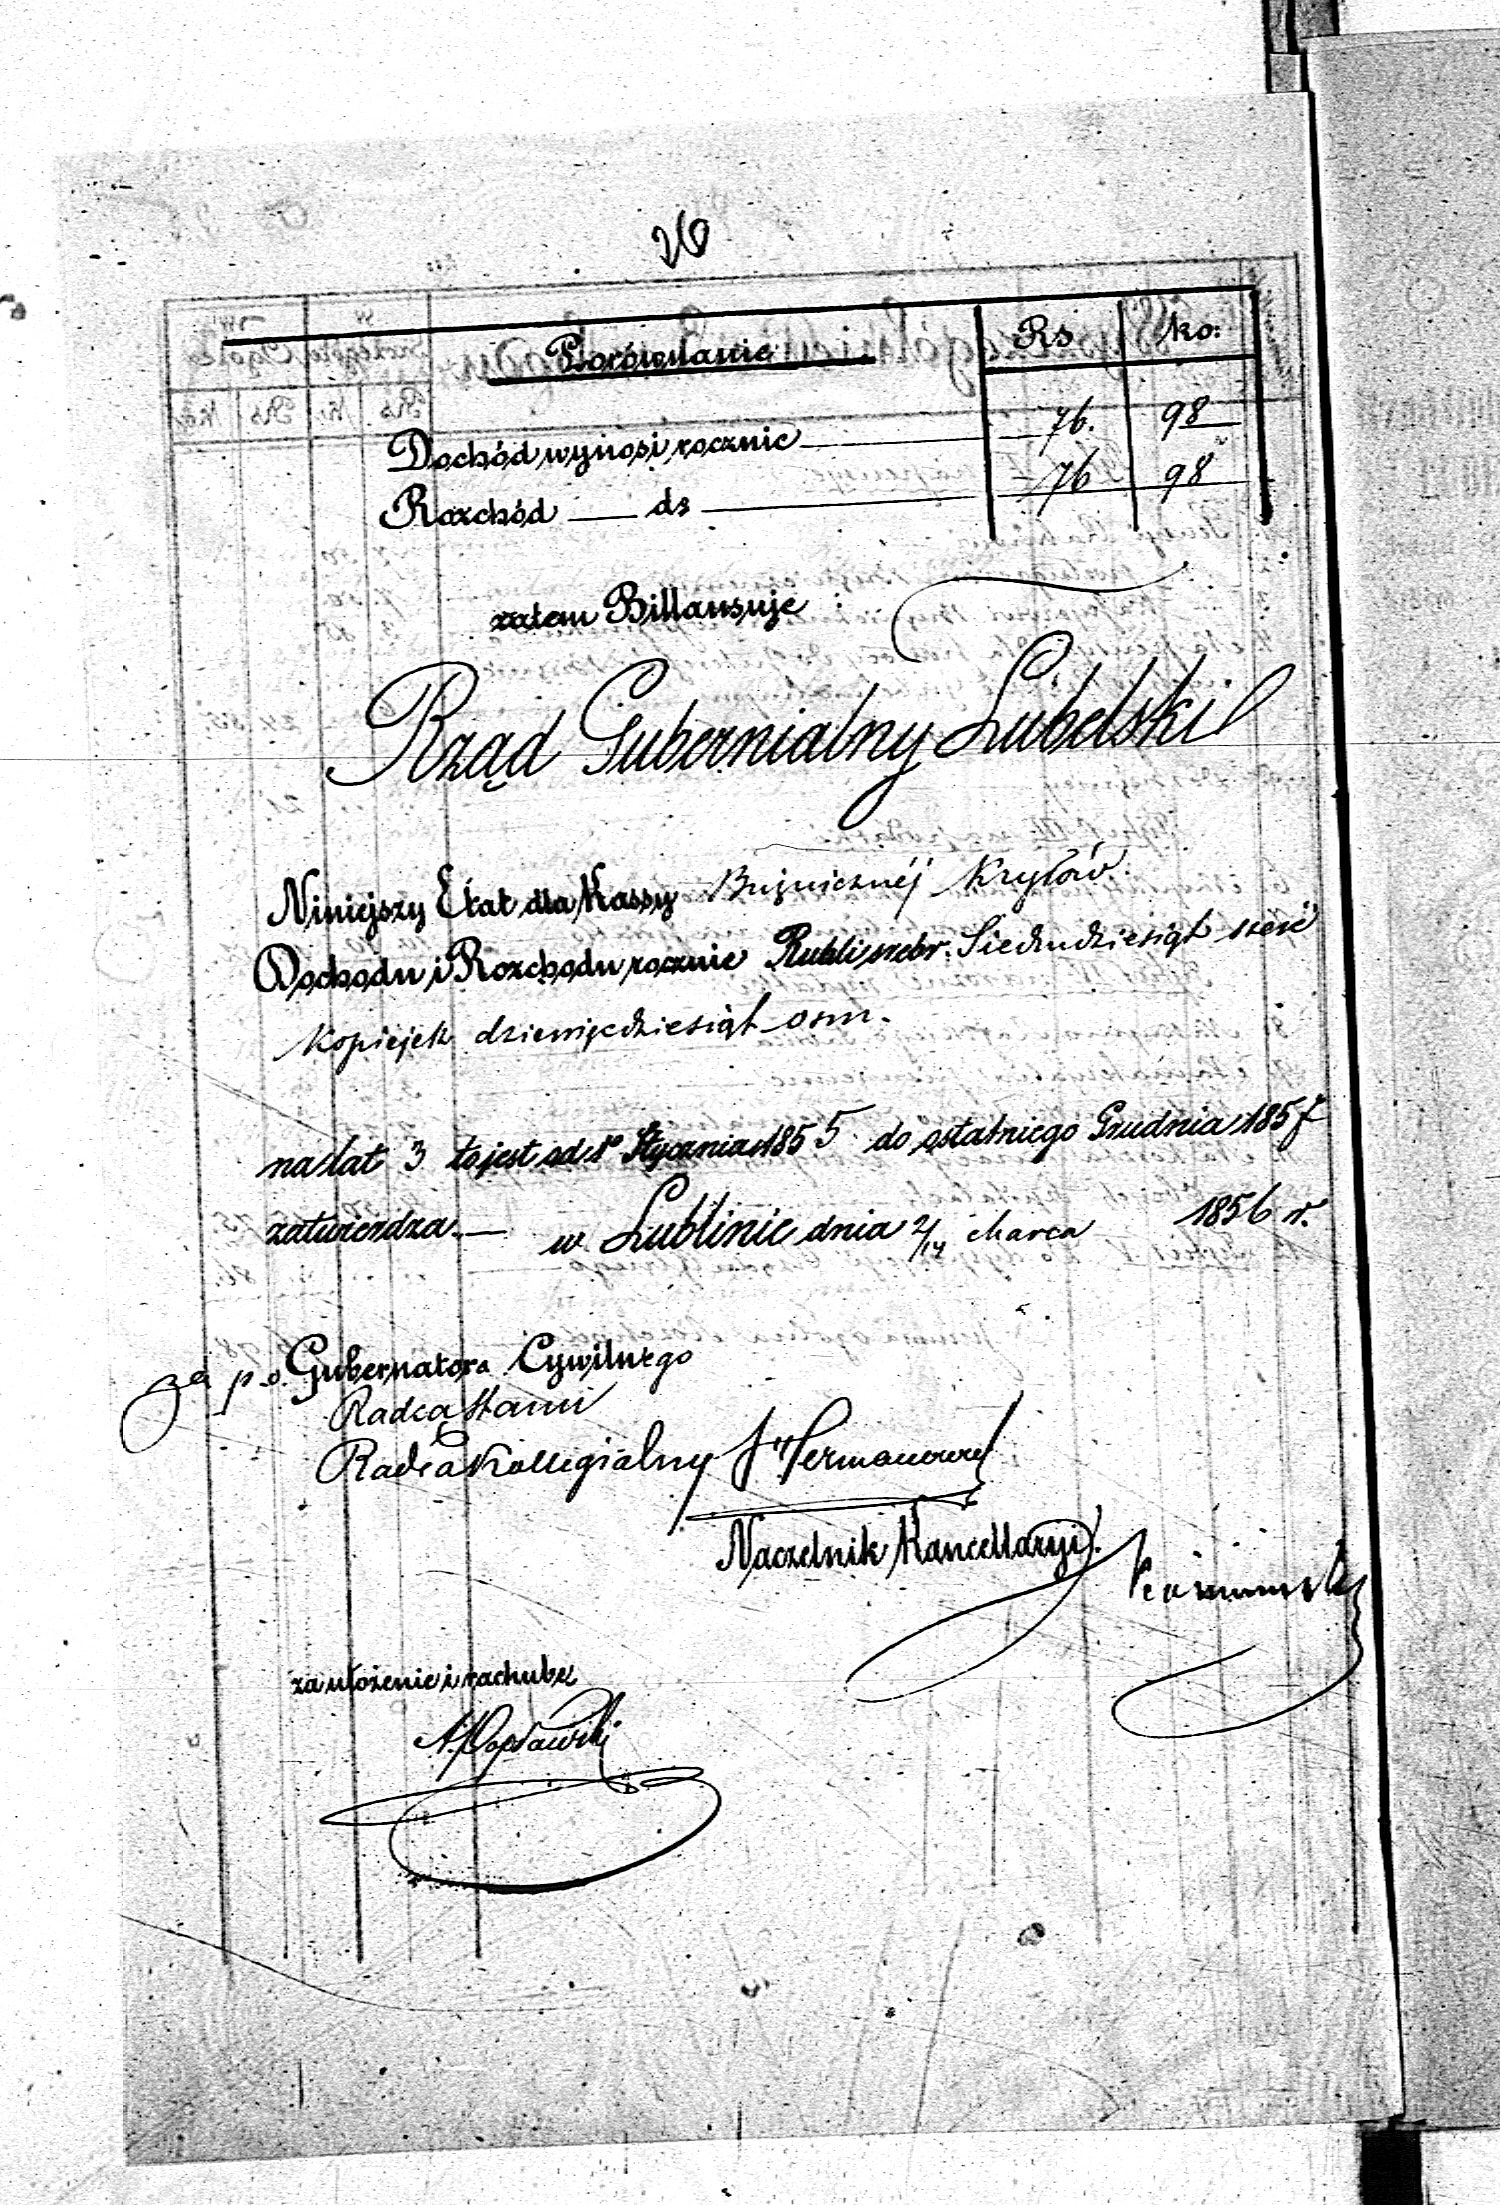 26
Porównanie Rs ko:
Dochód wynosi rocznie 76. 98
Rozchód ds 76 98
zatem Billansuje :
Rząd Gubernialny Lubelski
Niniejszy Etat dla Kassy Bużnicznéj Kryłów
Dochodu i Rozchodu rocznie Rubli srebr. Siedmdziesiąt sześć
Kopiejek dziewięćdziesiąt osm.
na lat 3 to jest od 1o Stycznia 1855 do ostatniego Grudnia 1857
zatwierdza. — w Lublinie dnia 2/14 Marca 1856 r.
za p.o. Gubernatora Cywilnego
Radca Stanu
Radca Kollegialny
Naczelnik Kancellaryi
za ułożenie i rachubę
A. Popławski